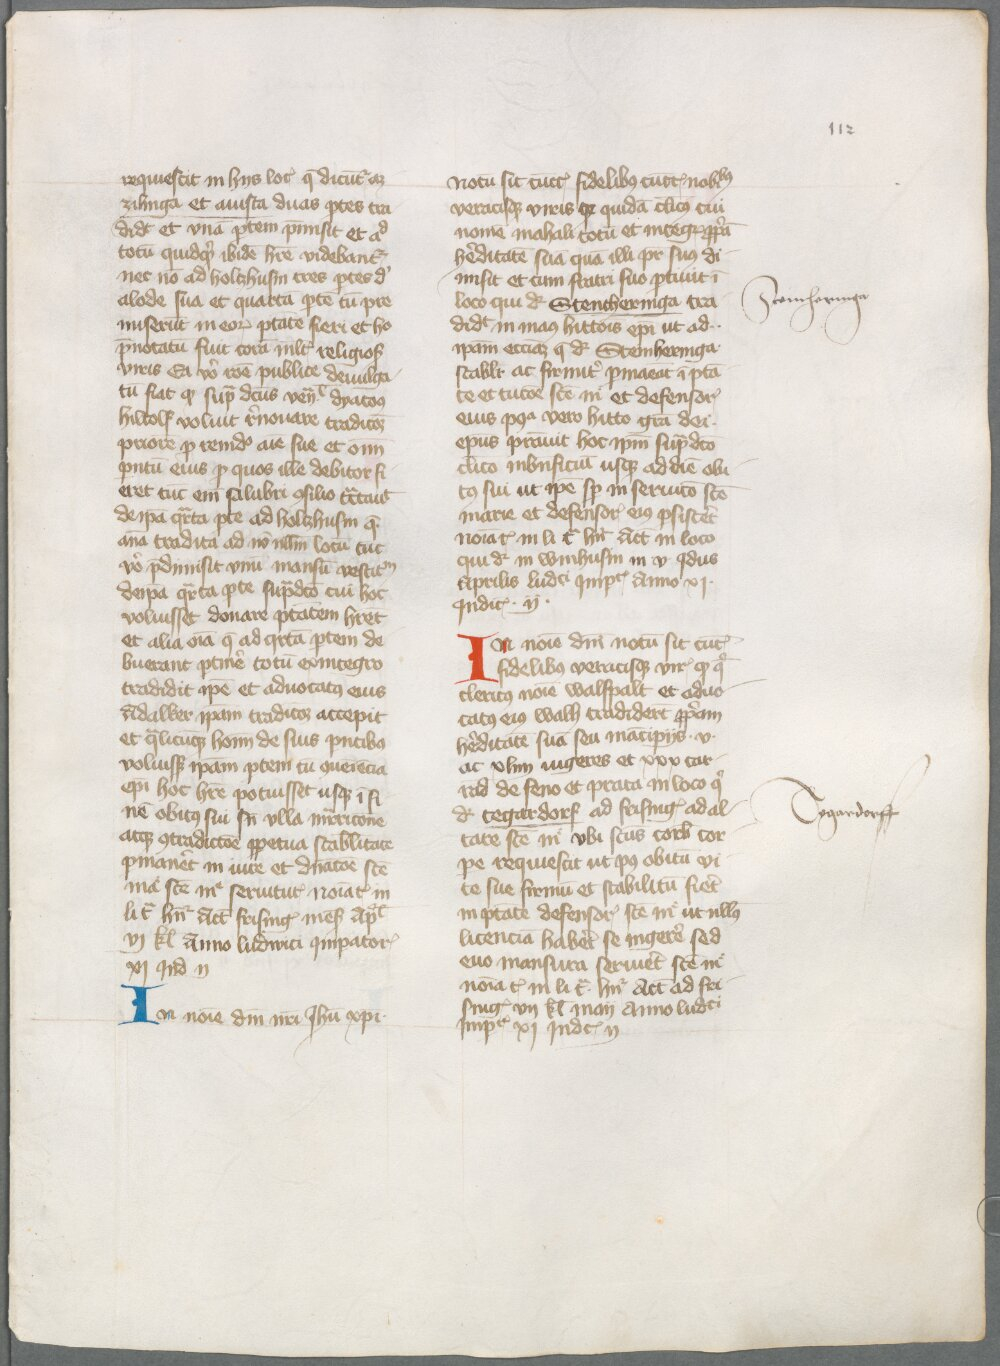 112
requiescit in hiis loc̄ q̄ dicūt᷑ az
zilinga et auista duas ptes tra
didt et vnā ptem pͥmisit et ad
totū quidqͥd ibidē hr̄e videbant᷑
nec nō ad holtzhusin tres ptes d'
alode sua et quarta pte tū pre
miserūt in eoꝝ ptāte fieri et ho
pͥnotatū fuit corā mlt᷑ religios᷑
viris Ea v̊ rōe publice deuulga
tū fiat qꝫ sup̄ dc̄us vēn̄l dyacōꝰ
hiltolf voluit rēnouare tradicōꝫ
priorē p remdō aīe sue et oīm
pͥntū eius p quos ille debitor fi
eret tūc enī salubri ꝯsilio tc̄taūt
de ip̄a qr̄ta pte ad holtzhusin q̄
an̄a tradita ad nō nllm̄ locū tūc
v̊ pͥdimisit vnū mansū vestitū
deip̄a qr̄ta pte sup̄dc̄o cui hoc
voluisset donare ptātem hr̄et
et alia oīa q̄ ad qr̄tā ptem de
buerant ptinē̄ totū exintegro
tradidit ip̄e et aduocatꝰ eius
Adalker ip̄am tradicōꝫ accepit
et qͣlicūqꝫ homi de suis pͥncibꝰ
voluiss᷑ ip̄am ptem tū querēcia
ep̄i hoc hr̄e potuisset usqꝫ ī fi
nē obitꝰ sui sn̄ vlla
atqꝫ ꝯtradictōe ꝑpetua stablitate
pmanēt in iure et dn̄atōe sc̄e
mā sc̄e mͤ seruitut᷑ noīat᷑ in
li t᷑ hn̄ Act̄ frising᷑ mes᷑ Ap̄l
vj kl̄ Anno ludwici Imp̄ator᷑
xj Ind ij
In noīe dn̄i nr̄i Jhū xpi.
Notū sit cūct᷑ fidelibꝰ cūct᷑ nobilibꝰ
veracisqꝫ viris qꝛ quidā clīcꝰ cui
nomē mahali totū et integꝝ ꝓpͥā
hēditatē suā quā illi pr suꝰ di
misit et cum fratri suo ptiuit ī
loco qui dꝛ Stencheringa tra
didt in manꝰ hittōis ep̄i ut ad
ip̄am ecc̄iaꝫ q̄ dꝛ Stemheringa
stablt᷑ ac firmit᷑ pmaeat ī ptā
te et tūcōe sc̄e mͤ et defensor᷑
eius pꝰa vero hitto grā dei
ep̄us prauit hoc ip̄m̄ sup̄dc̄o
clīco inbn̄ficiū usqꝫ ad diē obi
tꝰ sui ut ip̄e sp̄ in seruicō sc̄e
marie et defensor᷑ eiꝰ psistēt
noīat᷑ in li t᷑ hn̄ Act̄ in loco
qui dꝛ in winhusin in v ydus
Aprilis ludc̄i Imp᷑ Anno xj
Indic᷑ ij
In noīe dn̄i notū sit cūct᷑
fidelibꝰ veracisqꝫ vir᷑ qꝫ qͥ
clericꝰ noīe walspalt et aduo
catꝰ eiꝰ walh tradiderūt ꝓpͥam
hēditatē suā seu mācipijs v
ac xliiij iugeres et xxv car
rad de feno et prata in loco qͥ
dꝛ tegardorf ad frising᷑ ad al
tare sc̄e mͤ vbi sc̄us corb cor
pe requiescit ut pꝰ obitū vi
te sue firmū et stabilitū fiet
in ptāte defensor᷑ sc̄e mͤ ut nllꝰ
licenciā habēt se ingerē sed
euo mansura seruiēt sc̄e mͤ
noīat᷑ in li t᷑ hn̄ Act̄ ad fri
sing᷑ vij kl̄ maij Anno ludc̄i
Imp᷑ xj Indc᷑ ij
Stemheringa
Tegardorff